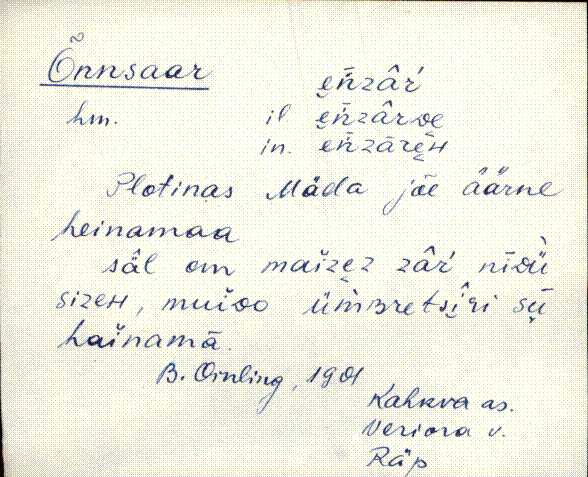 Õnnsaar e̮ńzâŕ
hm. il e̮ńzârᴅe̮
in. e̮ńzāre̮н
Plotinas Mäda jõe äärne
heinamaa
säl om maĭze̮z zâŕ nīᴅü̬
sizen, muĭᴅo üm̀ʙretsi̮ri sṳ̄
haĭnamā.
B. Ornling, 1901
Kahkva as.
Veriora v.
Räp